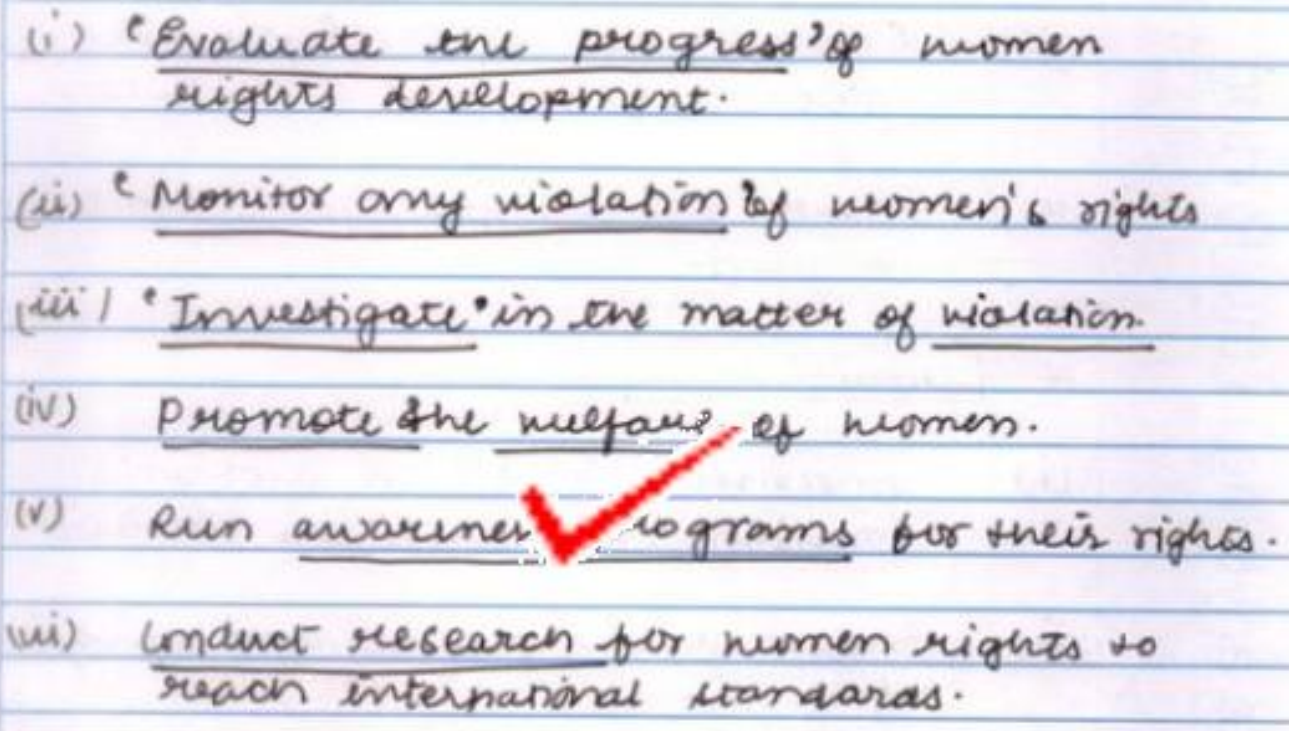 (i) 'Evaluate the progress' of women
rights development.
(ii) 'Monitor any violation' of women's rights
(iii) 'Investigate' in the matter of violation.
(iv) Promote the welfare of women.
(v) Run awareness programs for their rights.
(vi) Conduct research for women rights to
reach international standards.